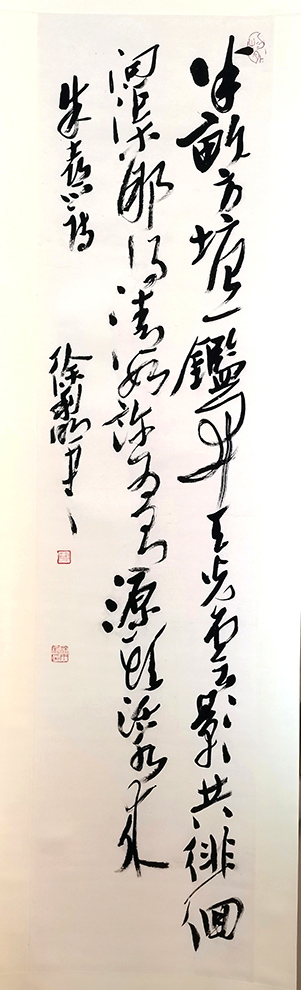 半畝方塘一鑑開天光雲影共徘徊
问渠那得清如許为有源頭活水来
朱熹诗
徐